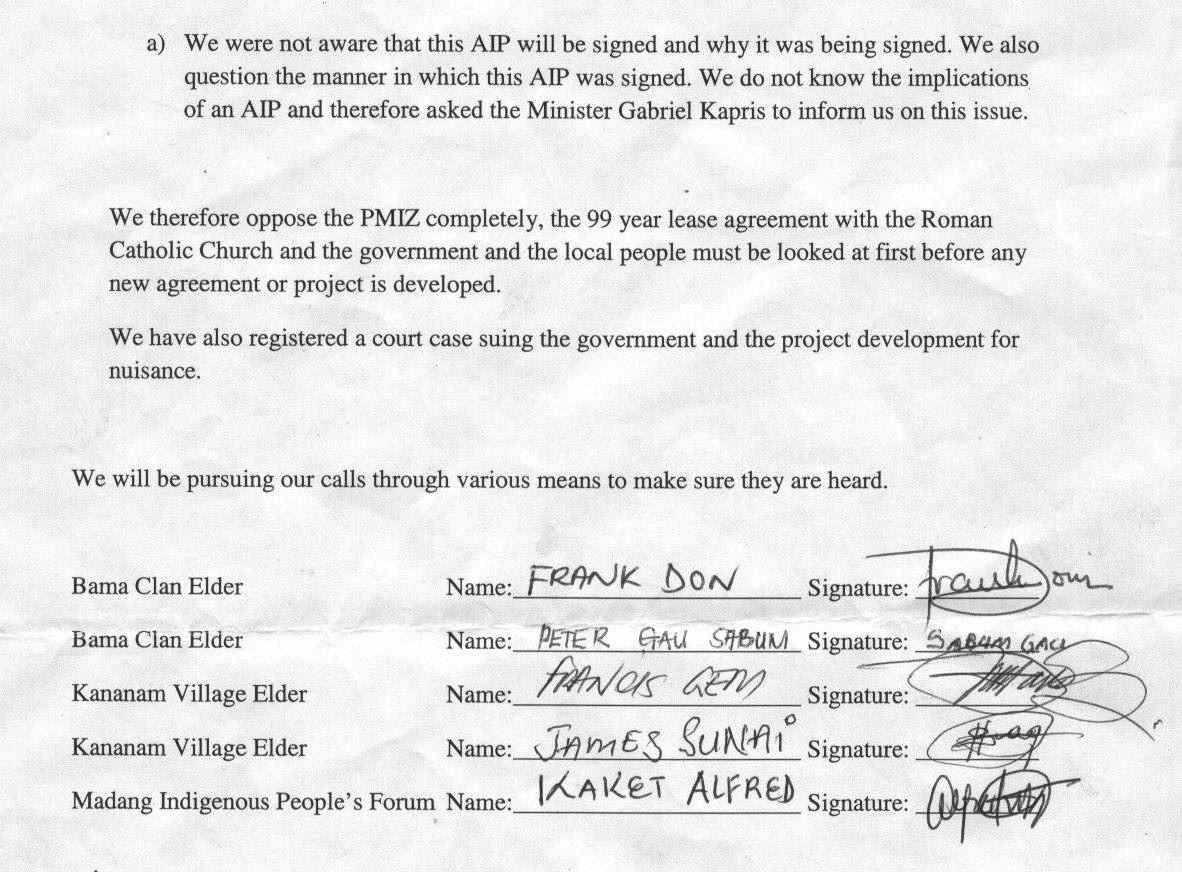 a) We were not aware that this AIP will be signed and why it was being signed. We also
question the manner in which this AIP was signed. We do not know the implications
of an AIP and therefore asked the Minister Gabriel Kapris to inform us on this issue.
We therefore oppose the PMIZ completely, the 99 year lease agreement with the Roman
Catholic Church and the government and the local people must be looked at first before any
new agreement or project is developed.
We have also registered a court case suing the government and the project development for
nuisance.
We will be pursuing our calls through various means to make sure they are heard.
Bama Clan Elder Name: FRANK DON Signature: Frank Don
Bama Clan Elder Name: PETER GAU SABUM Signature: SABUM GAU
Kananam Village Elder Name: FRANCIS GEM Signature:
Kananam Village Elder Name: JAMES SUNAi Signature:
Madang Indigenous People's Forum Name: KAKET ALFRED Signature: